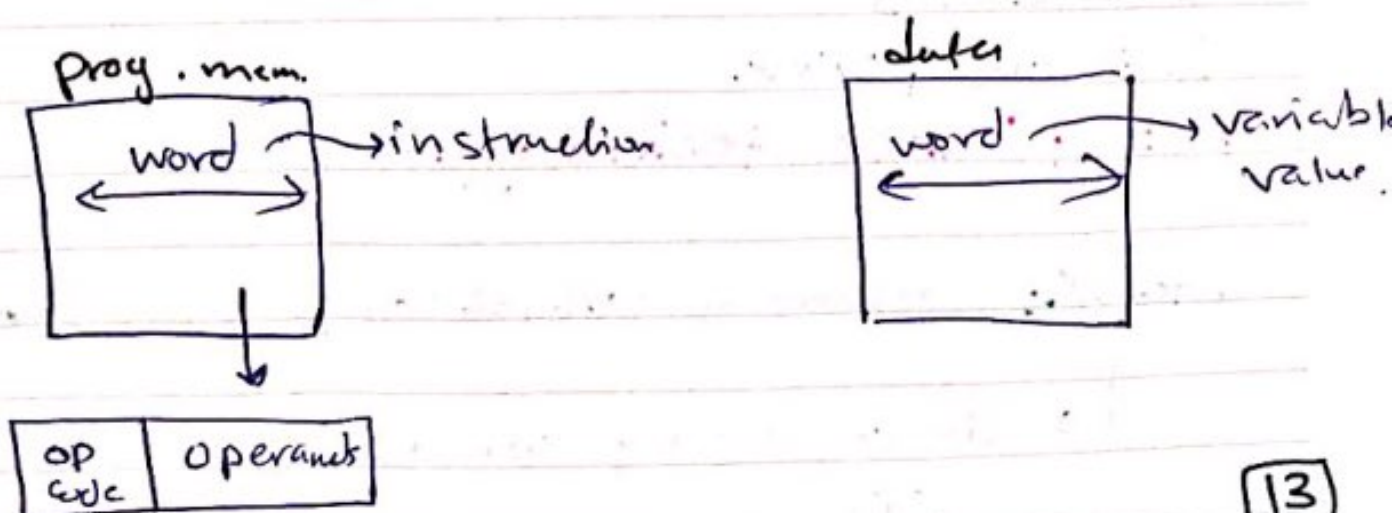 prog. mem.
data
word → instruction
word → variable
value.
op
code
operands
13